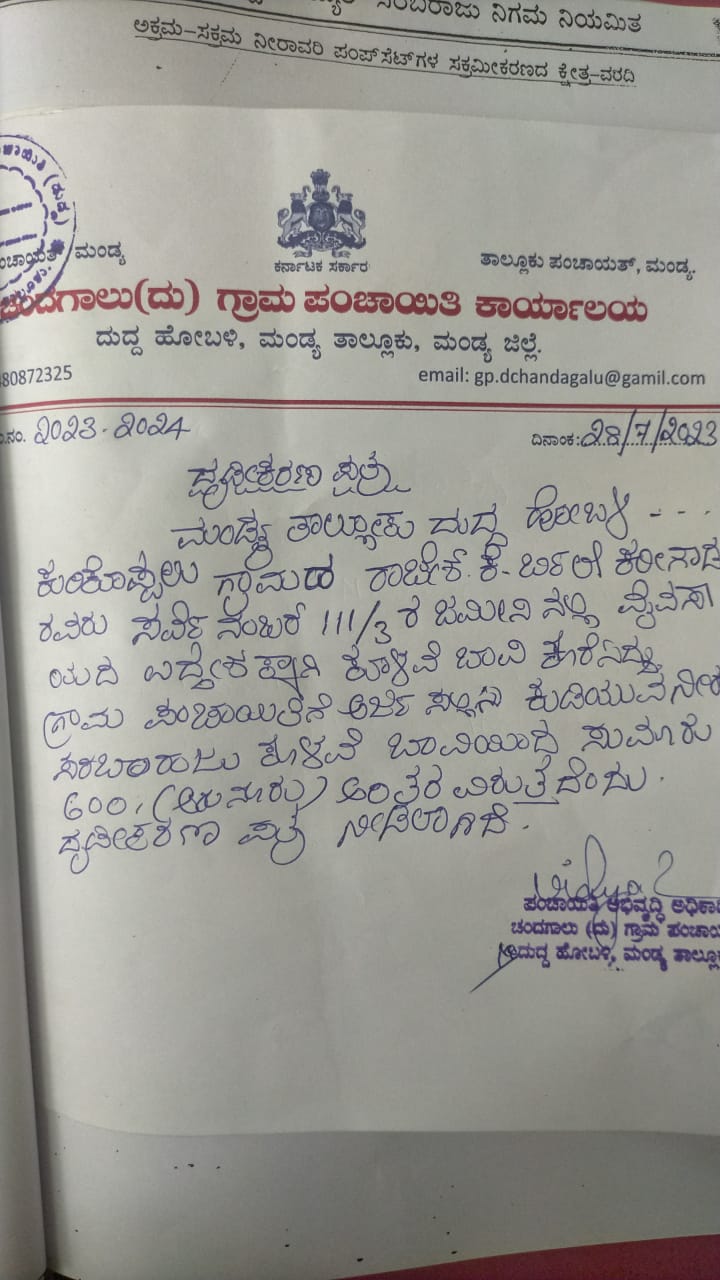 ಸರಬರಾಜು ನಿಗಮ ನಿಯಮಿತ
ಅಕ್ರಮ-ಸಕ್ರಮ ನೀರಾವರಿ ಪಂಪ್‌ಸೆಟ್‌ಗಳ ಸಕ್ರಮೀಕರಣದ ಕ್ಷೇತ್ರ-ವರದಿ
ಕರ್ನಾಟಕ ಸರ್ಕಾರ
ಮಂಡ್ಯ
ತಾಲ್ಲೂಕು ಪಂಚಾಯತ್, ಮಂಡ್ಯ.
ಚಂದಗಾಲು(ದು) ಗ್ರಾಮ ಪಂಚಾಯಿತಿ ಕಾರ್ಯಾಲಯ
ದುದ್ದ ಹೋಬಳಿ, ಮಂಡ್ಯ ತಾಲ್ಲೂಕು, ಮಂಡ್ಯ ಜಿಲ್ಲೆ.
80872325 email: gp.dchandagalu@gamil.com
ನಂ. 2023-2024 ದಿನಾಂಕ: 28/7/2023
ದೃಢೀಕರಣ ಪತ್ರ
ಮಂಡ್ಯ ತಾಲ್ಲೂಕು ದುದ್ದ ಹೋಬಳಿ ----
ಗ್ರಾಮದ
ರವರು ಸರ್ವೆ ನಂಬರ್ 111/3 ರ ಜಮೀನಿನಲ್ಲಿ ವ್ಯವಸಾ
ಯದ ಕೊಳವೆ ಬಾವಿ
ಗ್ರಾಮ ಪಂಚಾಯಿತಿಗೆ ಅರ್ಜಿ ಕುಡಿಯುವ ನೀರ
ಸರಬರಾಜು ಕೊಳವೆ ಬಾವಿಯಿಂದ ಸುಮಾರು
600, (ಆರುನೂರು) ಅಂತರ ವಿರುತ್ತದೆಂದು.
ದೃಢೀಕರಣ ಪತ್ರ ನೀಡಲಾಗಿದೆ.
ಪಂಚಾಯತಿ ಅಭಿವೃದ್ಧಿ ಅಧಿಕಾರಿ
ಚಂದಗಾಲು (ದು) ಗ್ರಾಮ ಪಂಚಾಯ
ದುದ್ದ ಹೋಬಳಿ, ಮಂಡ್ಯ ತಾಲ್ಲೂಕು